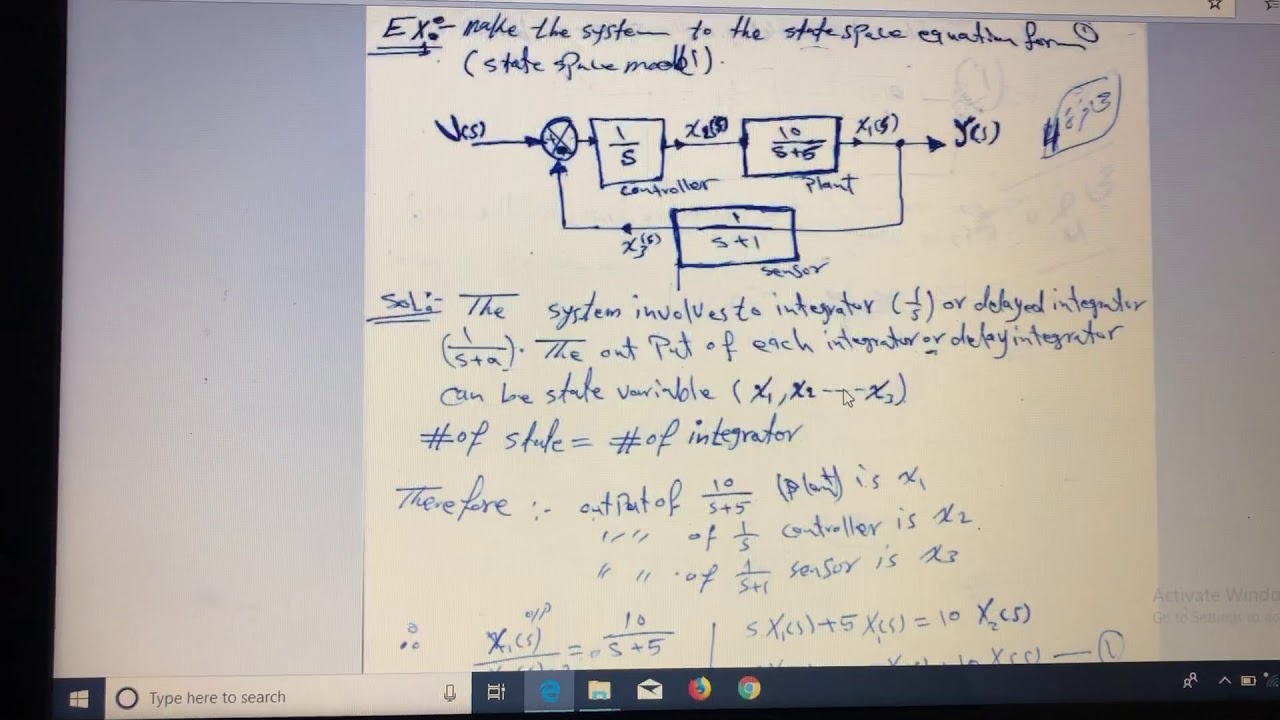 EX:- make the system to the state space equation form ①
(state space model).
U(s)
1/S
X2(s)
10/S+5
X1(s)
Y(s)
controller
plant
X3(s)
1/S+1
sensor
SOL:- The system involves to integrator (1/s) or delayed integrator
(1/s+a). The out Put of each integrator or delay integrator
can be state variable (x1, x2 ---- x3)
# of state = # of integrator
Therefore :- output of 10/s+5 (plant) is x1
" " of 1/s controller is x2
" " of 1/s+1 sensor is x3
∴ X1(s) = 10/s+5
o/p
sX1(s)+5X1(s) = 10 X2(s)
①
Activate Windo
Go to Settings to
Type here to search